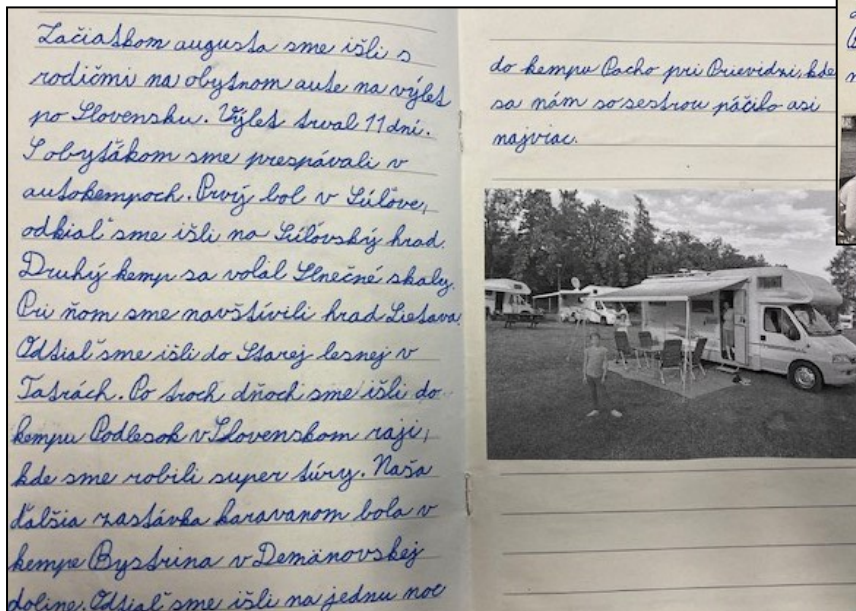 Začiatkom augusta sme išli s
rodičmi na obytnom aute na výlet
po Slovensku. Výlet trval 11 dní.
S obyťákom sme prespávali v
autokempoch. Prvý bol v Súľove,
odkiaľ sme išli na Súľovský hrad.
Druhý kemp sa volal Slnečné skaly.
Pri ňom sme navštívili hrad Lietava.
Odtiaľ sme išli do Starej lesnej v
Tatrách. Po troch dňoch sme išli do
kempu Podlesok v Slovenskom raji,
kde sme robili super túry. Naša
ďalšia zastávka karavanom bola v
kempe Bystrina v Demänovskej
doline. Odtiaľ sme išli na jednu noc
do kempu Pacho pri Prievidzi, kde
sa nám so sestrou páčilo asi
najviac.